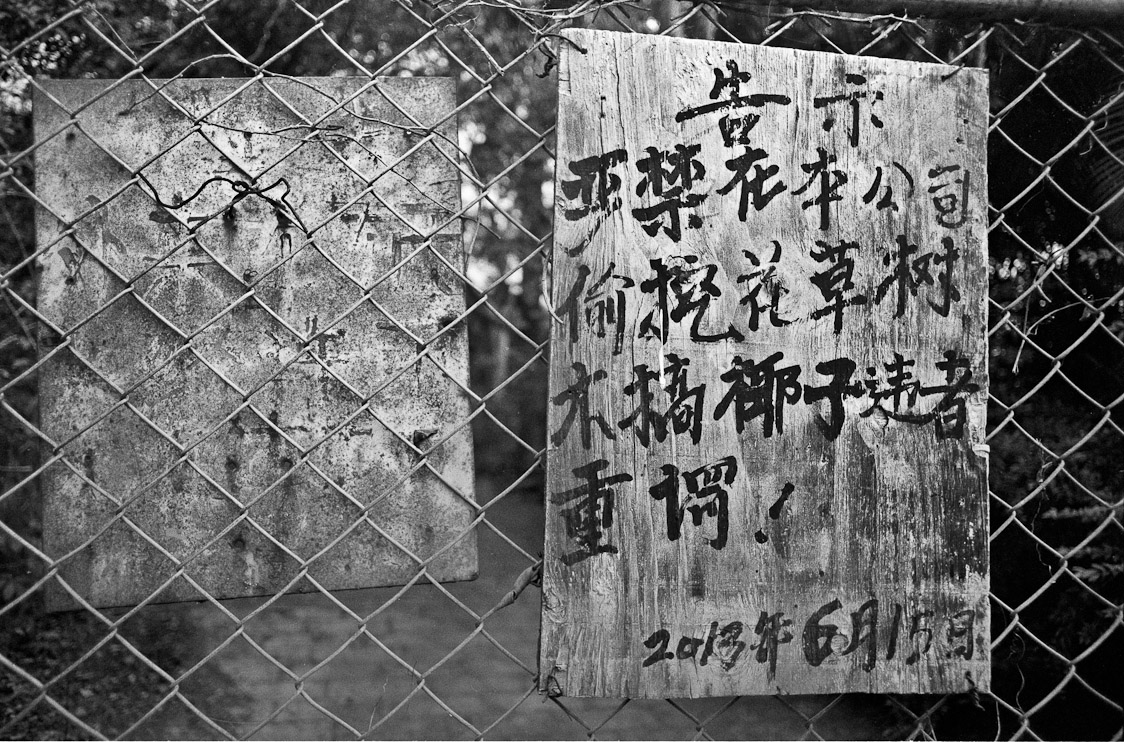 告示
严禁在本公司
偷挖花草树
木摘椰子违者
重罚!
2013年6月15日